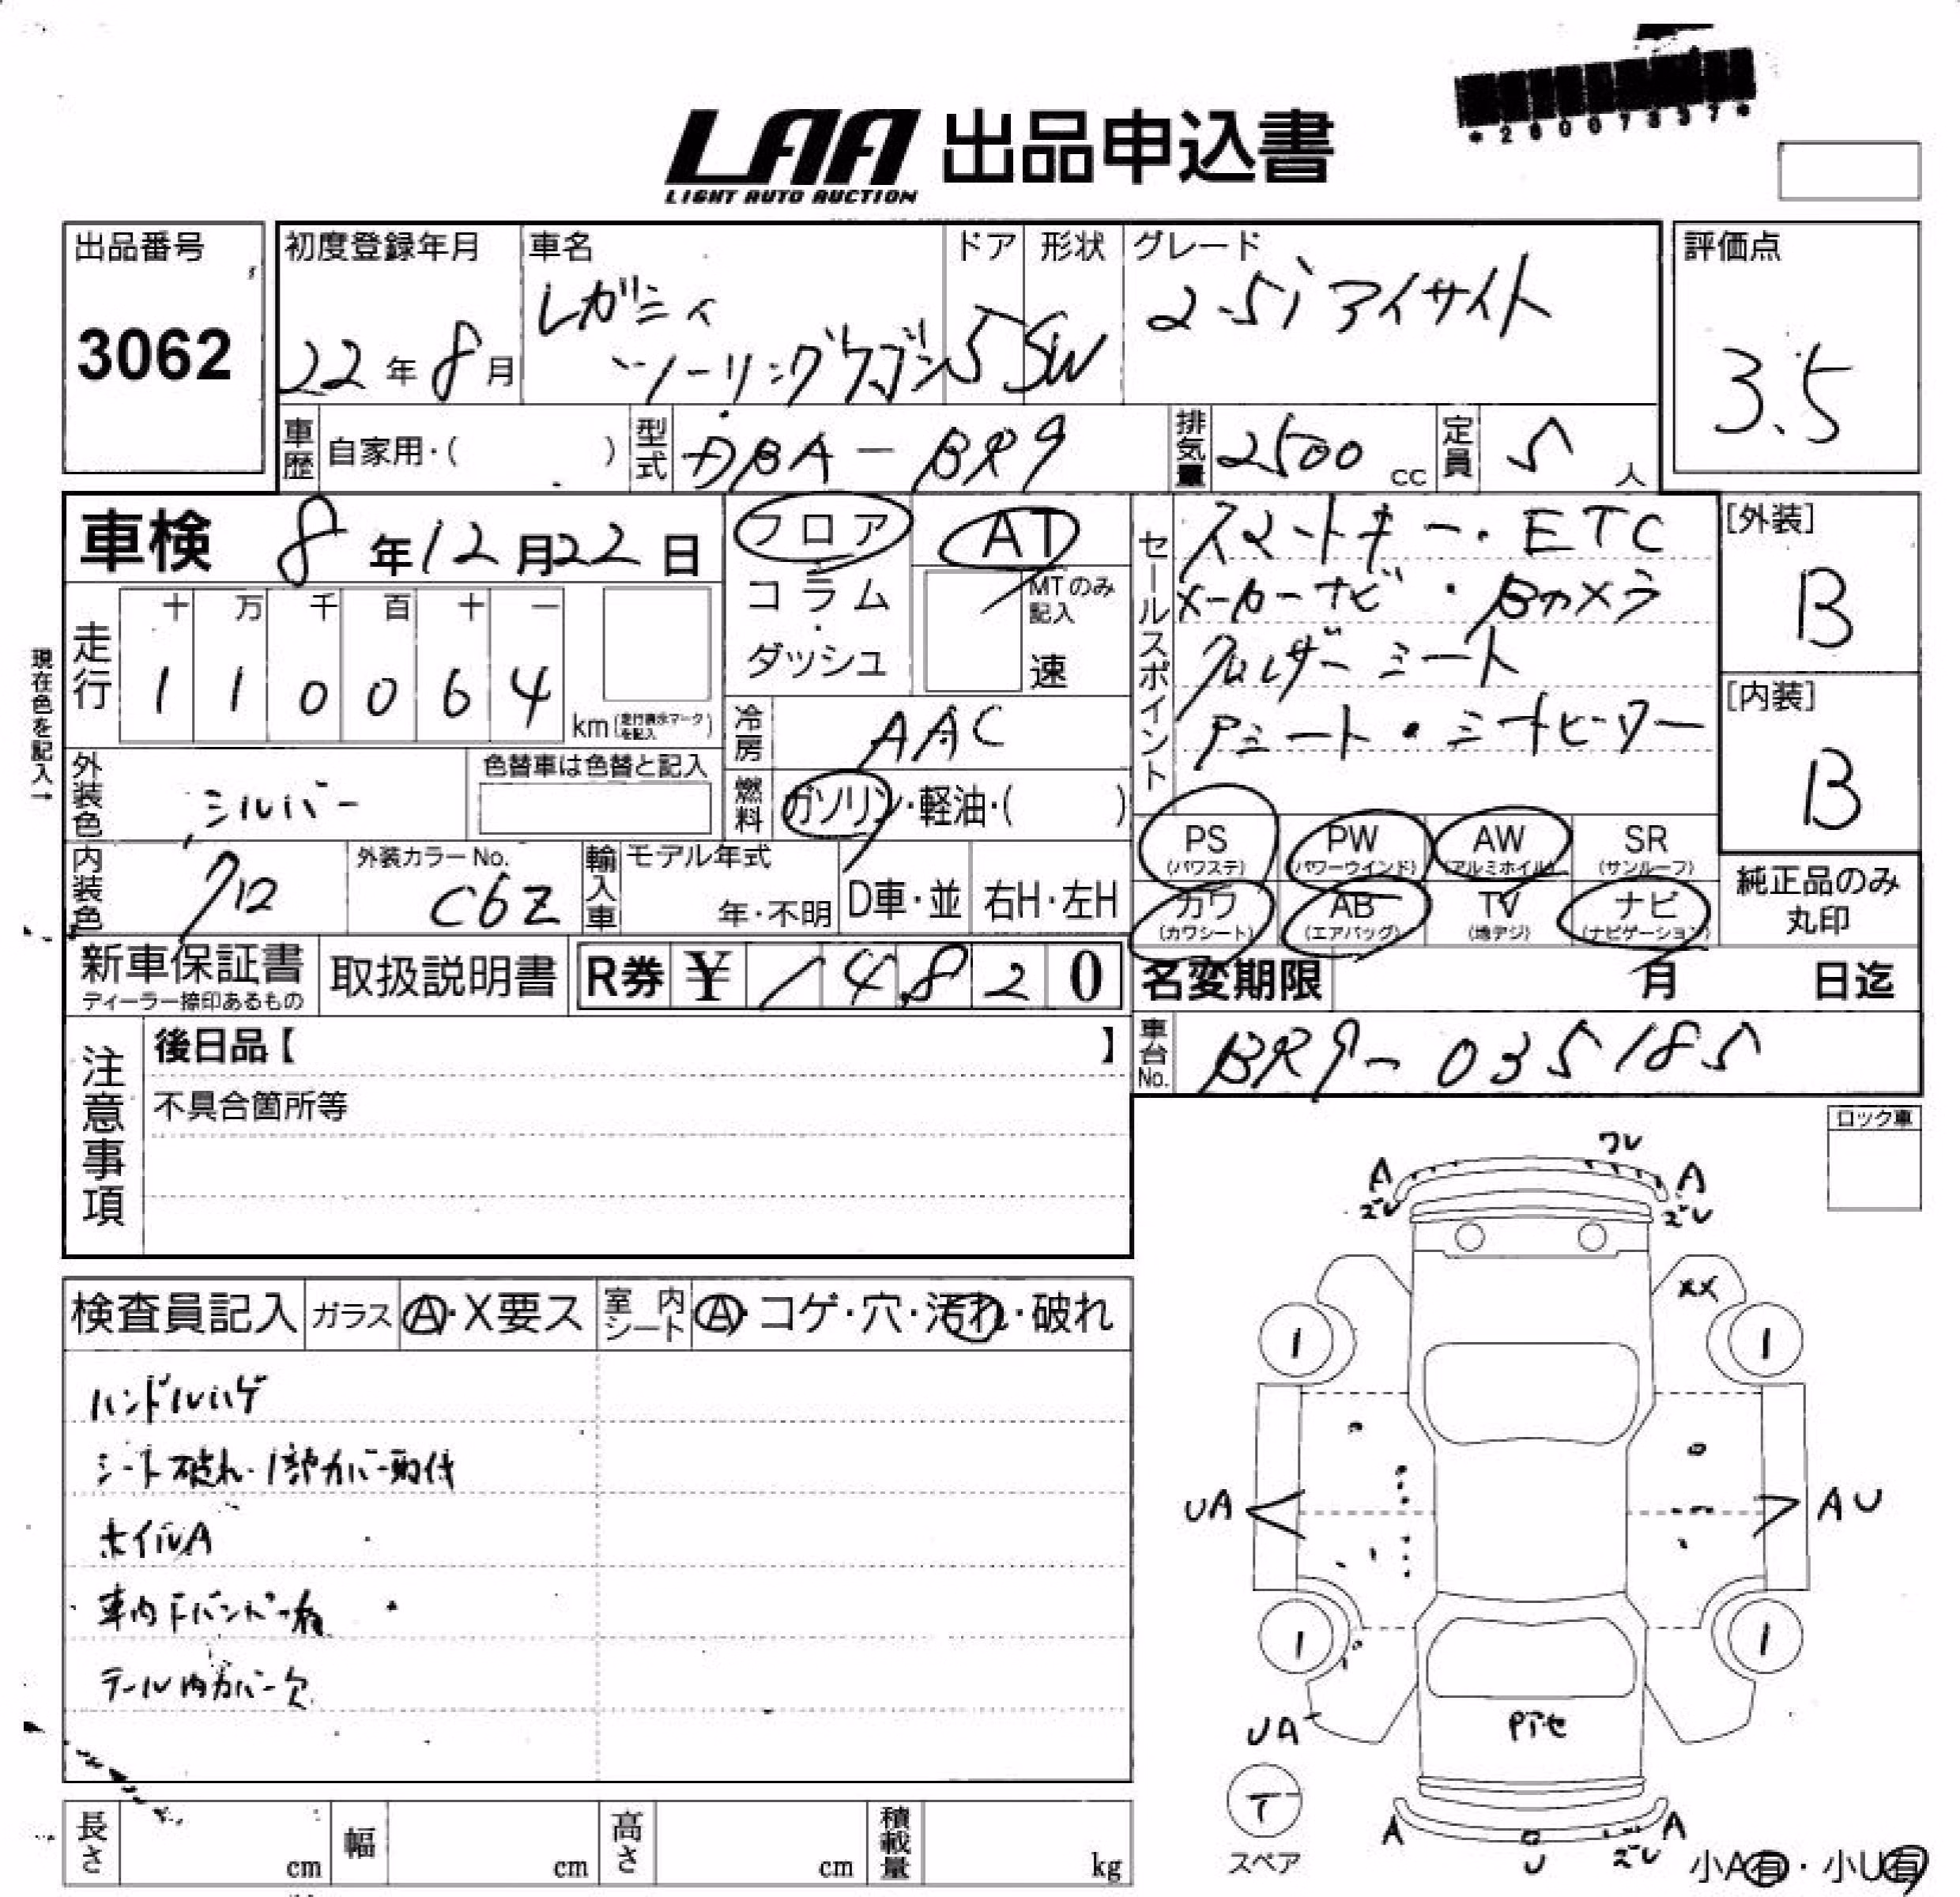 *2600733?*
LAA 出品申込書
LIGHT AUTO AUCTION
出品番号
3062
初度登録年月
22年8月
車名
レガシィ
ツーリングワゴン
ドア
5
形状
SW
グレード
2.5i アイサイト
評価点
3.5
車歴 自家用・( )
型式 DBA-BR9
排気量 2500 cc
定員 5人
車検 8年12月22日
フロア
コラム・
ダッシュ
AT
MTのみ記入
速
セールスポイント
スマートキー・ETC
メーカーナビ・Bカメラ
クロレザーシート
Pシート・シートヒーター
[外装]
B
[内装]
B
現在色を記入→
走行
十 万 千 百 十 一
1 1 0 0 6 4
km(走行表示マークを記入)
冷房 AAC
燃料 ガソリン・軽油・( )
外装色 シルバー
色替車は色替と記入
内装色 クロ
外装カラーNo.
C6Z
輸入車
モデル年式
年・不明
D車・並
右H・左H
PS
(パワステ)
PW
(パワーウインド)
AW
(アルミホイル)
SR
(サンルーフ)
カワ
(カワシート)
AB
(エアバッグ)
TV
(地デジ)
ナビ
(ナビゲーション)
純正品のみ
丸印
新車保証書
ディーラー捺印あるもの
取扱説明書
R券 ¥ 14,820
名変期限 月 日迄
車台No. BR9-035185
注意事項
後日品【 】
不具合箇所等
ロック車
検査員記入
ガラス A・X要ス
室内シート A・コゲ・穴・汚れ・破れ
ハンドルハゲ
シート破れ・1部カバー取付
ホイルA
車内Fバンパー有
テール内カバー欠
ワレ
A A
ズレ ズレ
XX
1 1
UA AU
1 1
UA
Pアセ
T
スペア
A A
U ズレ
小A有・小U有
長さ cm
幅 cm
高さ cm
積載量 kg